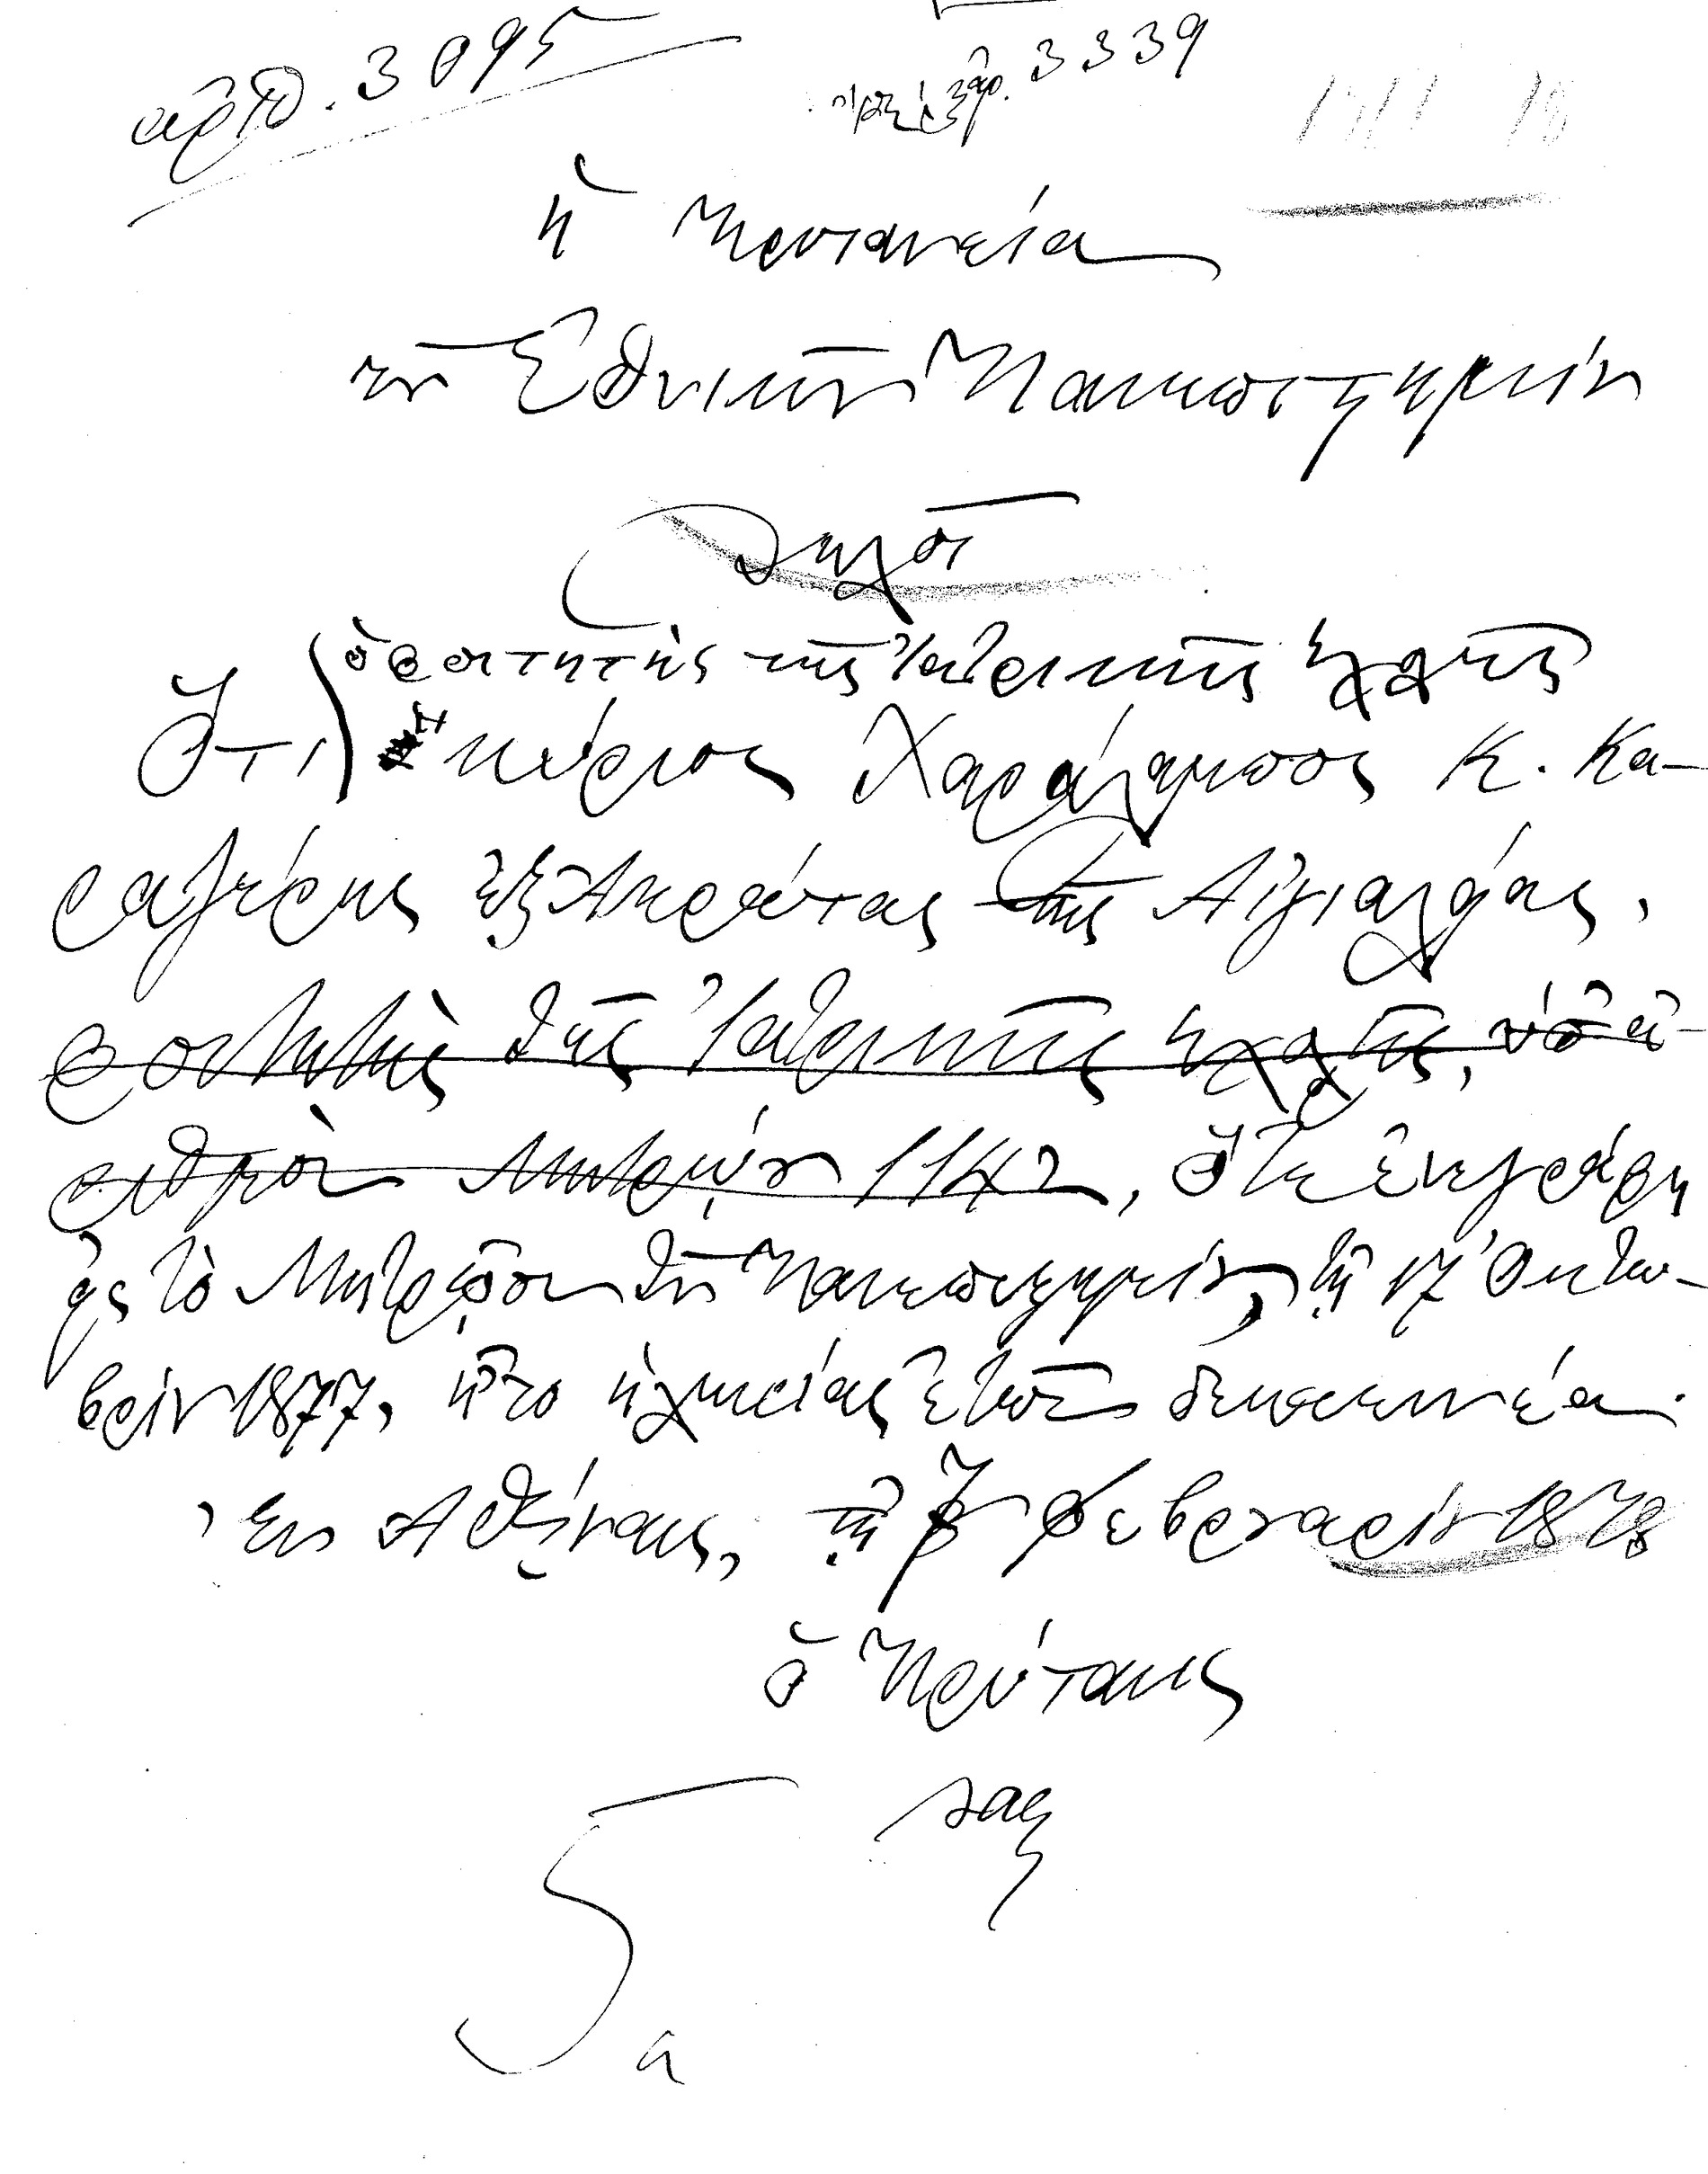 ἀριθ. 3095
πρωτ. ἐξερ. 3339
Ἡ Πρυτανεία
τοῦ Ἐθνικοῦ Πανεπιστημίου
Δηλοῖ
ὁ φοιτητὴς τῆς Ἰατρικῆς σχολῆς
Ὅτι κύριος Χαράλαμπος Κ. Κα-
ραγέρης ἐξ Ἀκράτας τῆς Αἰγιαλείας,
φοιτητὴς τῆς Ἰατρικῆς σχολῆς, ὑπ' ἀ-
ριθμὸν Μητρῴου 1142, ὅτε ἐνεγράφη
εἰς τὸ Μητρῷον τοῦ Πανεπιστημίου, τῇ 17 Ὀκτω-
βρίου 1877, ἦτο ἡλικίας ἐτῶν δεκαεννέα.
Ἐν Ἀθήναις, τῇ Φεβρουαρίου 1878
Ὁ Πρύτανις